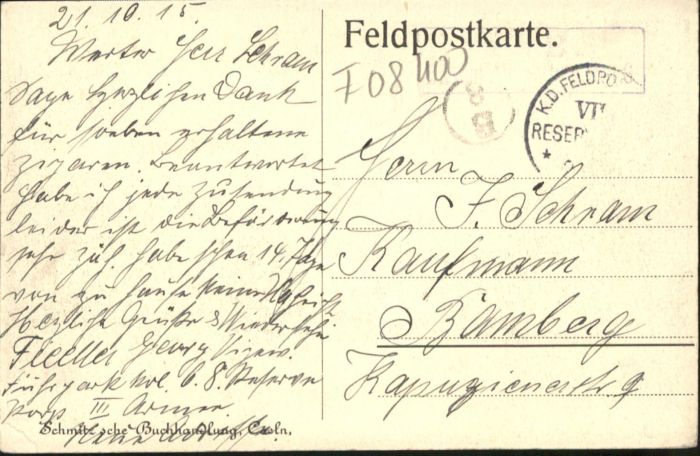 21.10.15.
Werter Herr Schram
Sage herzlichen Dank
für soeben erhaltene
Zigaren. Beantwortet
habe ich jede Zusendung
leider ist die Beförderung
sehr habe schon 14. Tage
von zu Hause keine
Herzliche Grüße & Wiedersehn
Georg
6. 8. Reserve
Korp III Armee.
Schmitz'sche Buchhandlung, Coeln.
Feldpostkarte.
F 08 400
B
K.D. FELDPO
VII
RESER
Herrn
F. Schram
Kaufmann
Bamberg
Kapuzienerstr 9